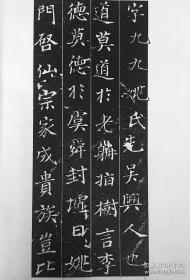 字九九姚氏先吳興人也
道莫道於老聃指樹言李
德莫德於虞舜封墟曰姚
門啓仙宗家成貴族豈比